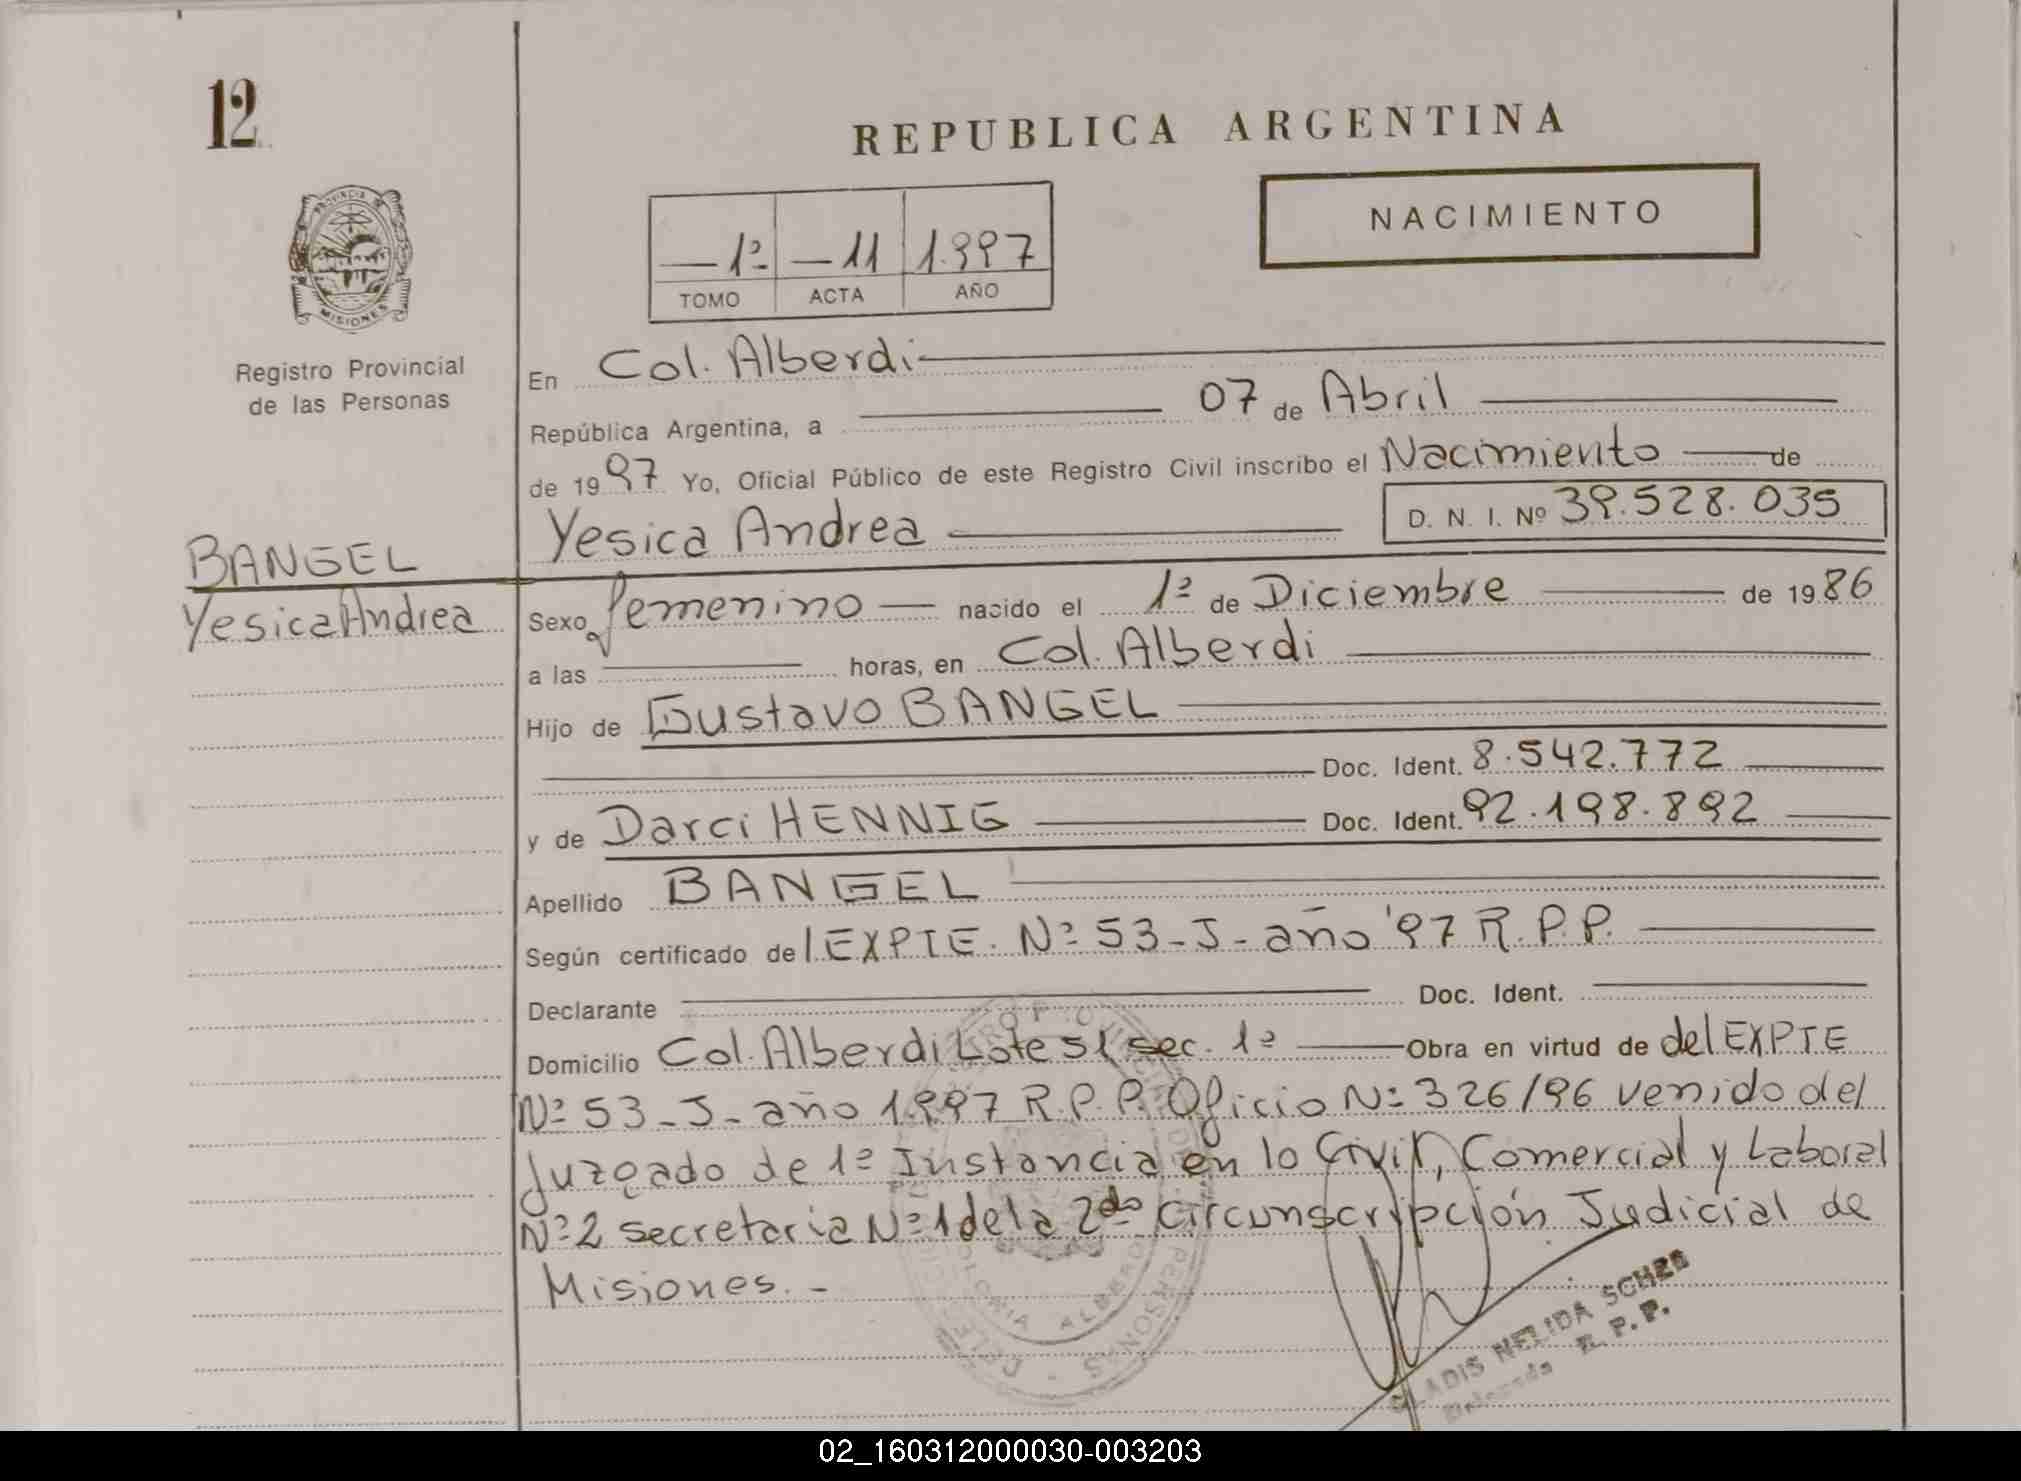 12
REPUBLICA ARGENTINA
NACIMIENTO
PROVINCIA DE
MISIONES
Registro Provincial
de las Personas
— 1º - — 11 1.997
TOMO ACTA AÑO
En Col. Alberdi
República Argentina, a 07 de Abril
de 1997 Yo, Oficial Público de este Registro Civil inscribo el Nacimiento de
Yesica Andrea D. N. I. Nº 39.528.035
BANGEL
Yesica Andrea
Sexo femenino nacido el 1º de Diciembre de 1986
a las horas, en Col. Alberdi
Hijo de Gustavo BANGEL
Doc. Ident. 8.542.772
y de Darci HENNIG Doc. Ident. 92.198.892
Apellido BANGEL
Según certificado del EXPTE. Nº 53 - J - año '97 R.P.P.
Declarante Doc. Ident.
Domicilio Col. Alberdi Lote 51 sec. 1º Obra en virtud de del EXPTE
Nº 53 - J - año 1.997 R.P.P. Oficio Nº 326/96 venido del
Juzgado de 1º Instancia en lo Civil, Comercial y Laboral
Nº 2 secretaria Nº 1 de la 2da Circunscripción Judicial de
Misiones. -
COLONIA ALBERDI
PERSONAS
GLADIS NELIDA
Delegada R. P. P.
02_160312000030-003203